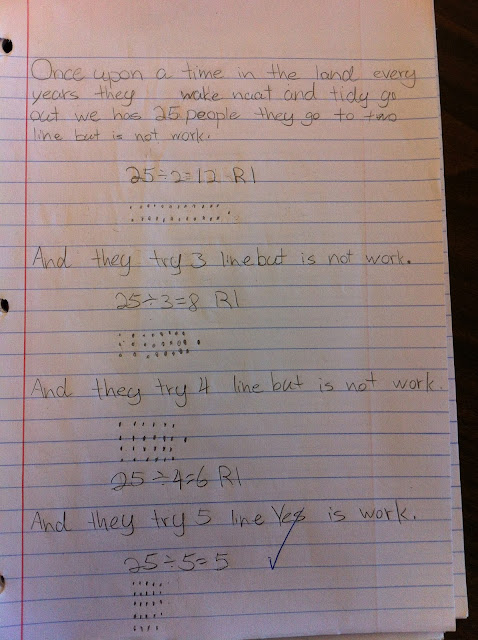 Once upon a time in the land every
years they make neat and tidy go
out we has 25 people they go to two
line but is not work.
25÷2=12 R1
And they try 3 line but is not work.
25÷3=8 R1
And they try 4 line but is not work.
25÷4=6 R1
And they try 5 line Yes is work.
25÷5=5